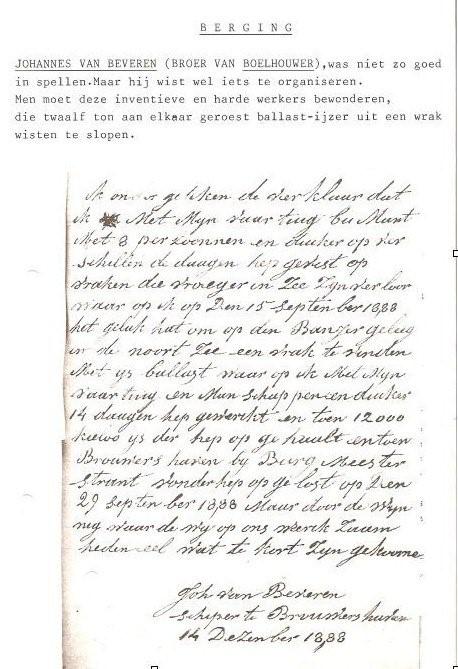 BERGING
JOHANNES VAN BEVEREN (BROER VAN BOELHOUWER),was niet zo goed
in spellen.Maar hij wist wel iets te organiseren.
Men moet deze inventieve en harde werkers bewonderen,
die twaalf ton aan elkaar geroest ballast-ijzer uit een wrak
wisten te slopen.
ik geliken de verklaar dat
ik Met Mijn vaar tuig
Met 8 perzoonnen en duiker op ver
schillen de daagen hep gevist op
vraken die vroeger in Zee Zijn verloor
waar op ik op Den 15 September 1888
het geluk hat om op den Banjer geleeg
in de noort Zee een vrak te vinden
Met ys ballast waar op ik Met Mijn
vaar tuig en Man schappen en duiker
14 daagen hep gewerkt en toen 12000
kiewo ys der hep op ge haalt en toen
Brouwers haven by Burg Meester
strant vonder hep op ge lost op Den
29 September 1888 Maar door de wyn
nig waar de wy op ons werk
heden veel wat te kort Zyn gekoome
Joh van Beveren
schiper te Brouwershaven
14 Dezenber 1888